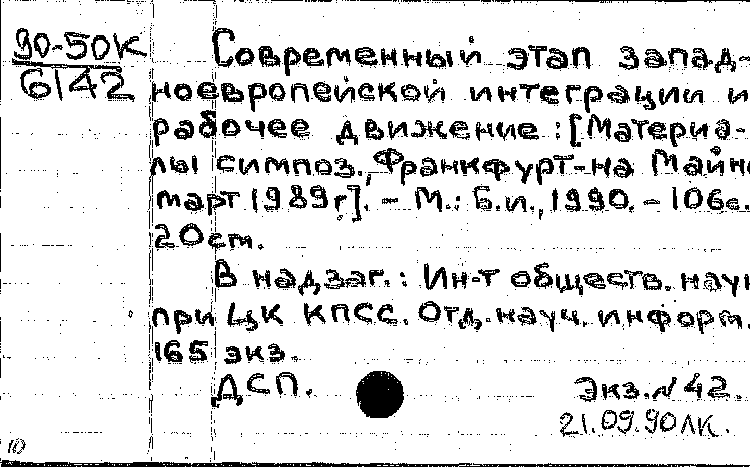 90-50К
6142
Современный этап запад-
ноевропейской интеграции и
рабочее движение : [Материа-
лы симпоз., Франкфурт-на Майне
март 1989г]. - М.: Б.и., 1990. - 106с.
20см.
В надзаг.: Ин-т обществ. наук
при ЦК КПСС. Отд. науч. информ.
165 экз.
ДСП.
Экз. № 42.
21.09.90 ЛК.
10